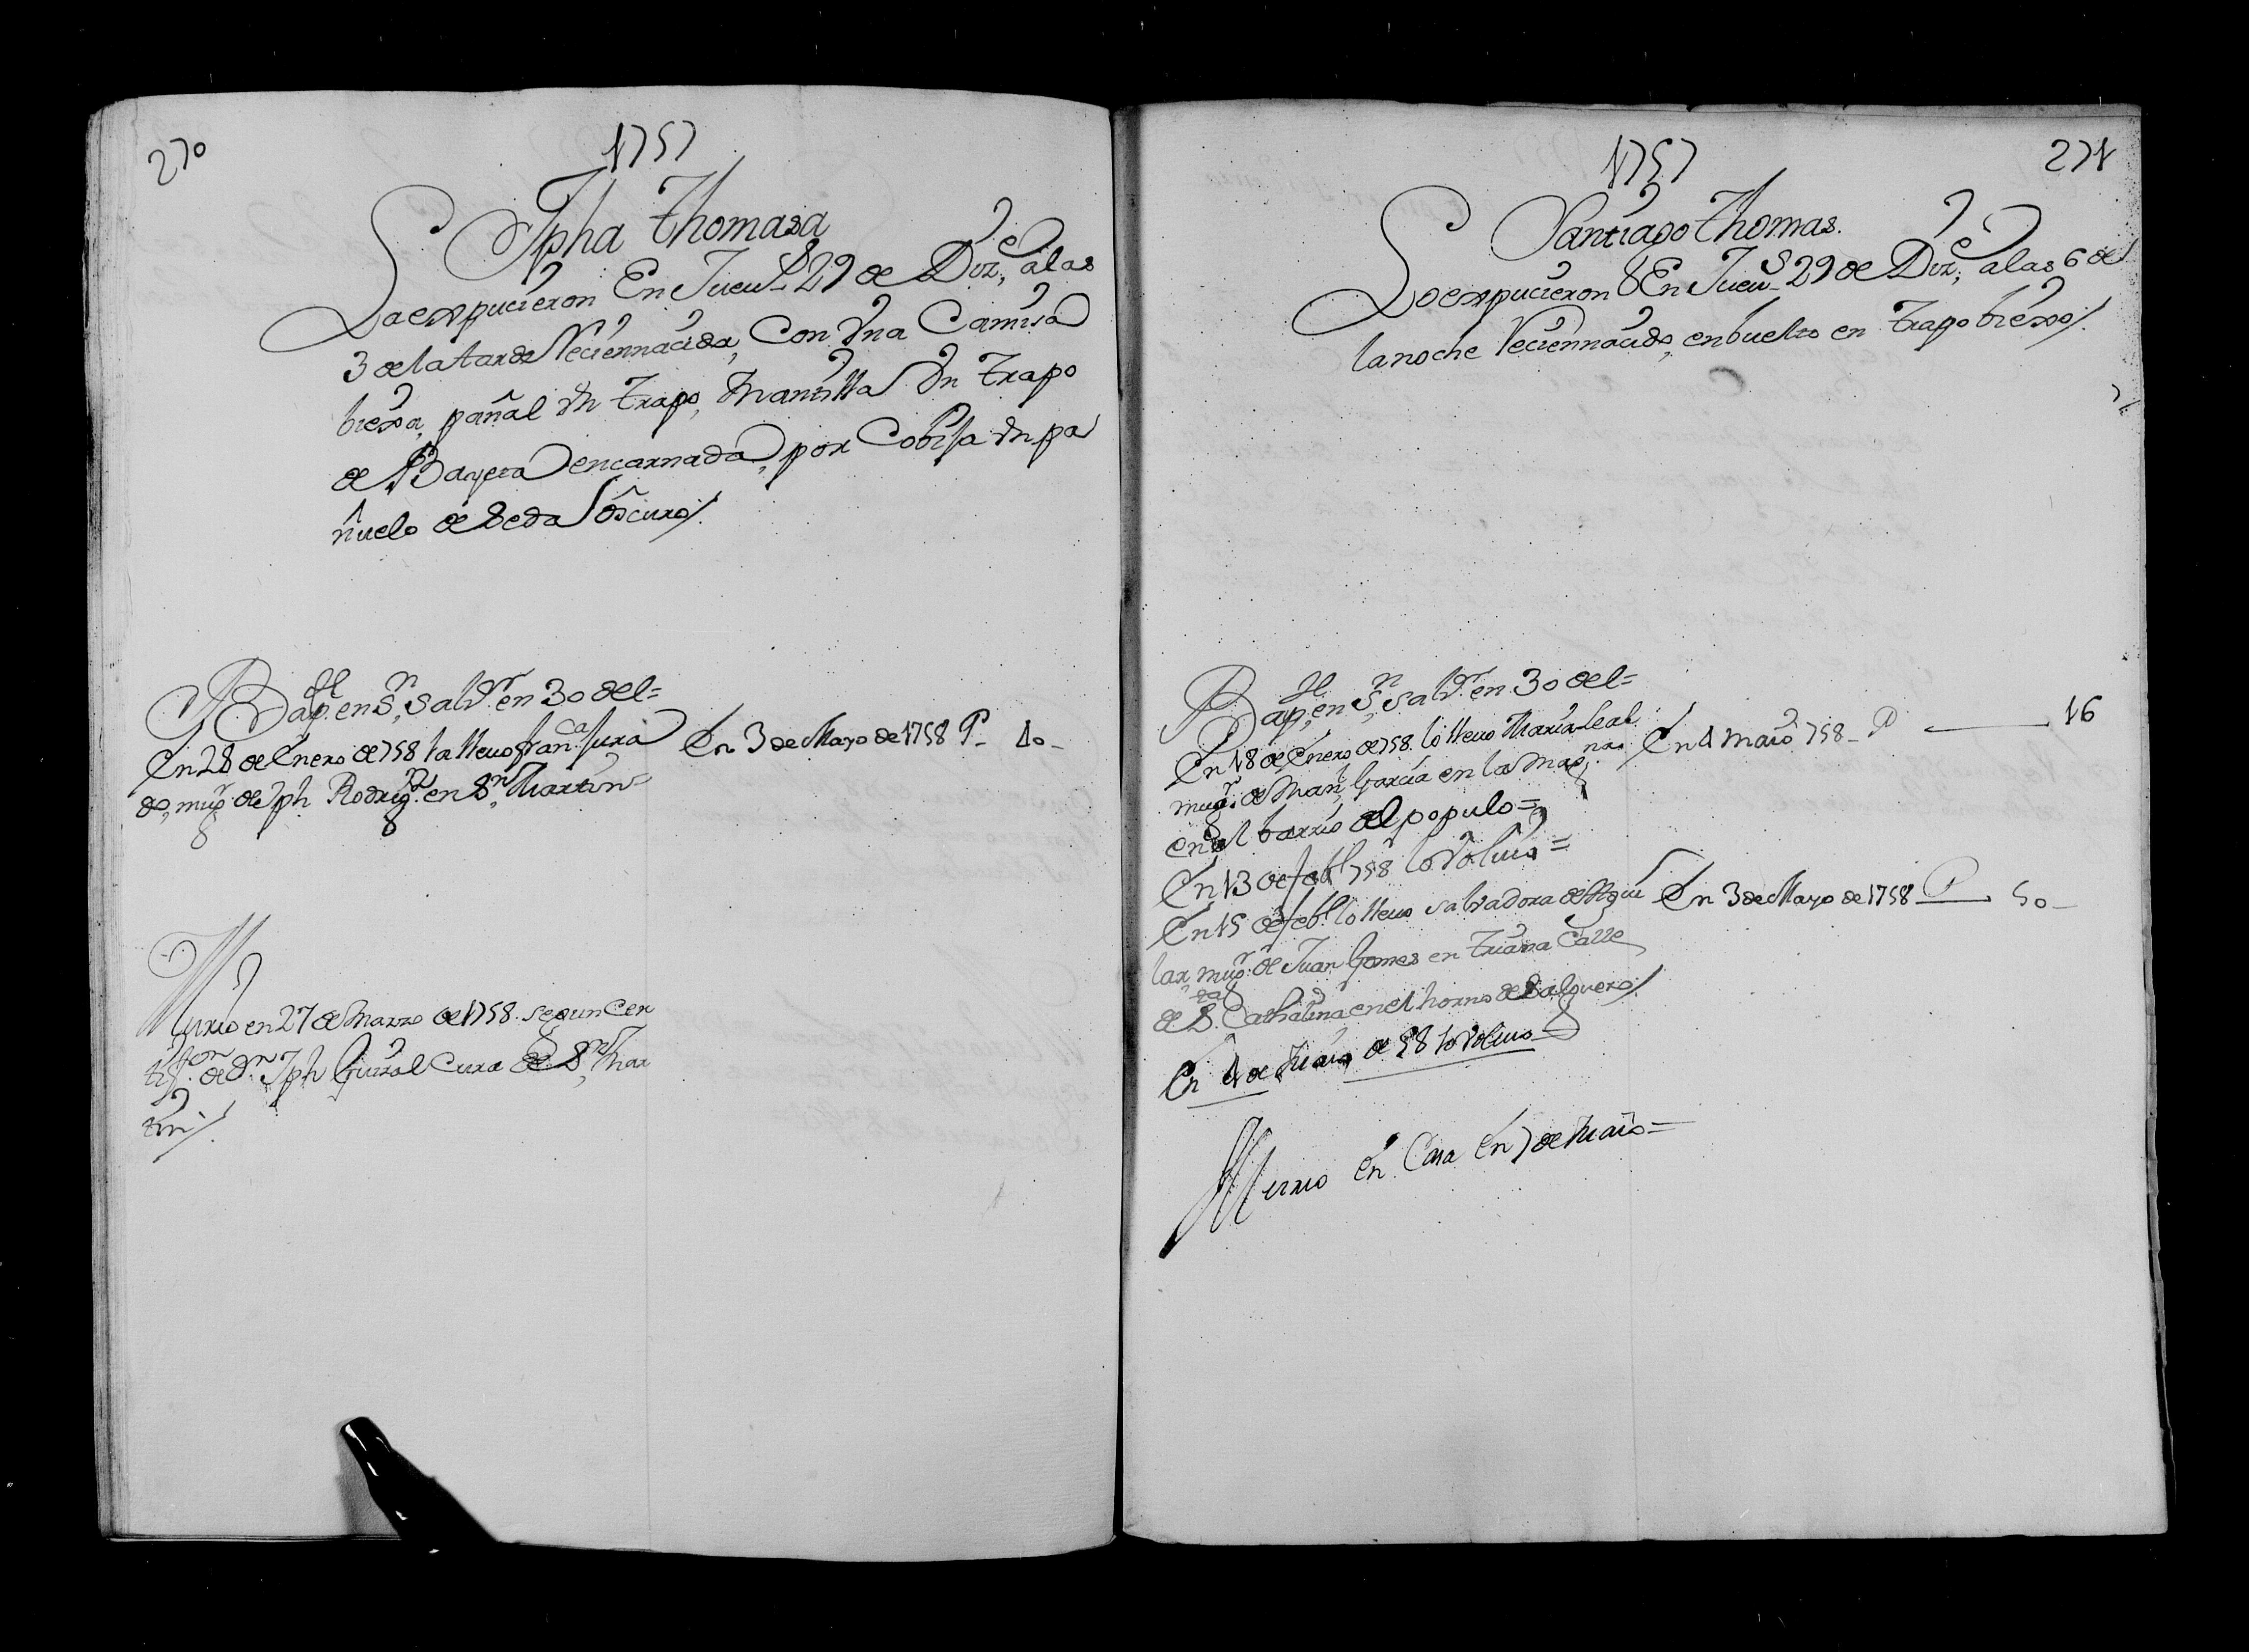 270
1757
Jpha Thomasa
La expucieron En Juev.s 29 de Diz.e, a las
3 de la tarde Reciennacida, Con Una Camisa
biexa, pañal Un trapo, Mantilla Un trapo
de Bayeta encarnada, por Cobija Un pa
ñuelo de Seda oscuro/.
Bap. en S.n Salv.r en 30 del=
En 28 de Enero de 758 la llevo fran.ca Jura
do, mug.r de Jph Rodrig.z en S.n Martin=
En 3 de Mayo de 1758 P. 40-
Murio en 27 de Marzo de 1758 segun Cer
tif.on de D.n Jph Guiral Cura de S.n Mar
tin/.
1757
271
Santiago Thomas.
Lo expucieron En Juev.s 29 de Diz.e, a las 6 de
la noche Reciennacido, enbuelto en trapo biexo/.
Bap, en S.n Salv.r en 30 del=
En 18 de Enero de 758 lo llevo Maria Leal
mug.r de Man.l Garcia en la
en el barrio del populo=
En 4 maio 758- P 16
En 13 de feb.o 758 lo Volvio=
En 15 de feb.o lo llevo Salvadora de Agui
lar, mug.r de Juan Gomes en Triana Calle
de S.ta Cathalina en el horno de Salguero/
En 3 de Mayo de 1758 P 50-
En 4 de Maio de 58 lo Volvio=
Murio en Casa en 7 de Maio=